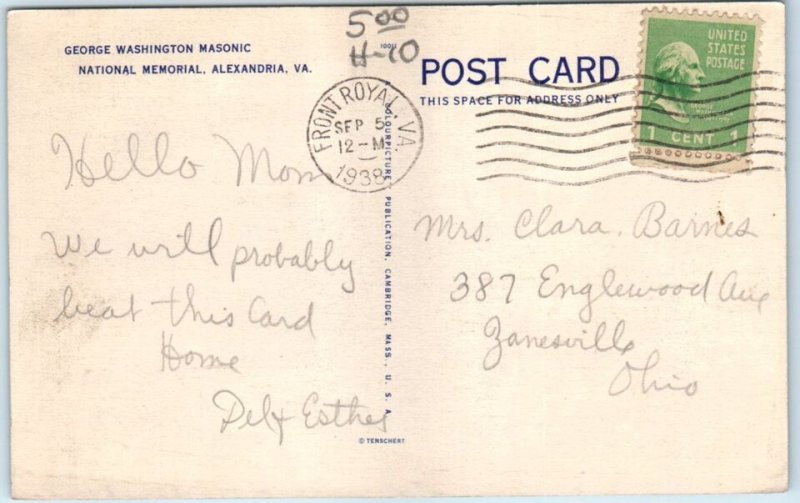 GEORGE WASHINGTON MASONIC
NATIONAL MEMORIAL, ALEXANDRIA, VA.
5.00
H-10
10011
POST CARD
THIS SPACE FOR ADDRESS ONLY
UNITED
STATES
POSTAGE
1 CENT 1
FRONT ROYAL, VA.
SEP 5
12-M
1938
COLOURPICTURE PUBLICATION, CAMBRIDGE, MASS., U.S.A.
Hello Mom
We will probably
beat this Card
Home
Del & Esther
Mrs. Clara Barnes
387 Englewood Ave
Zanesville
Ohio
© TENSCHERT